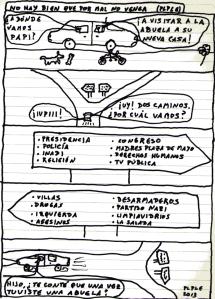 NO HAY BIEN QUE POR MAL NO VENGA (PLPLE)
¿ADÓNDE
VAMOS
PAPI?
¡A VISITAR A LA
ABUELA A SU
NUEVA CASA!
¡YUPIII!
¡UY! DOS CAMINOS.
¿POR CUÁL VAMOS?
• PRESIDENCIA
• POLICÍA
• INADI
• RELIGIÓN
• CONGRESO
• MADRES PLAZA DE MAYO
• DERECHOS HUMANOS
• TV PÚBLICA
• VILLAS
• DROGAS
• IZQUIERDA
• ASESINOS
• DESARMADEROS
• PARTIDO NAZI
• LIMPIAVIDRIOS
• LA SALADA
HIJO, ¿TE CONTÉ QUE UNA VEZ
TUVISTE UNA ABUELA?
PLPLE
2013